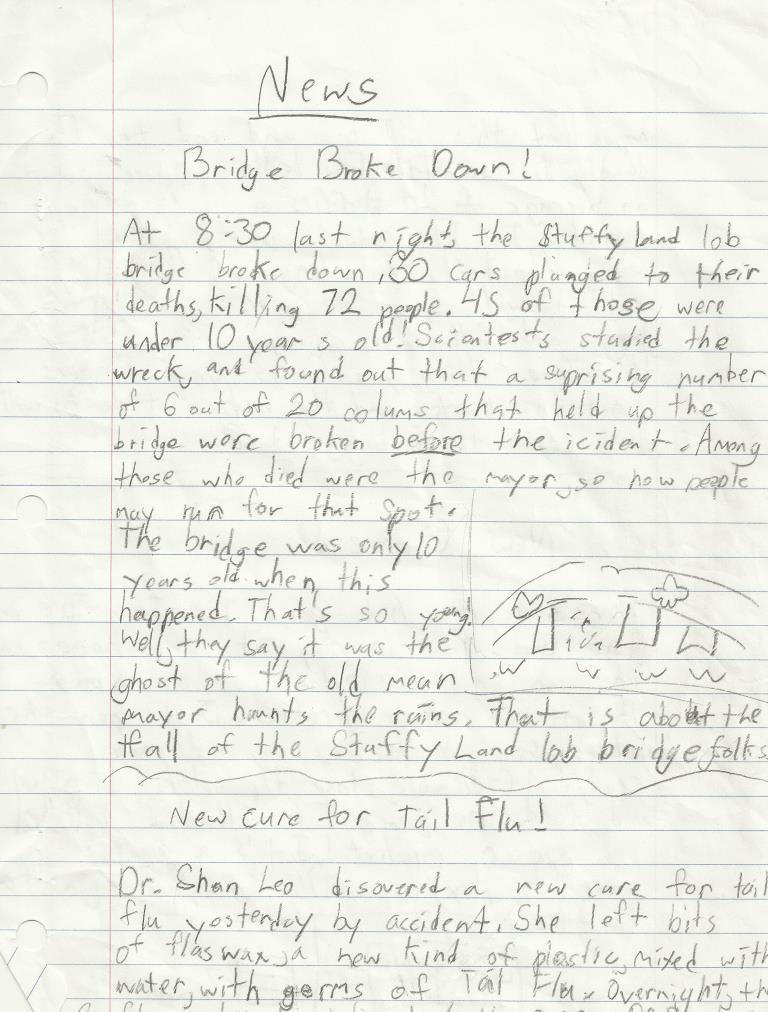 News
Bridge Broke Down!
At 8:30 last night, the Stuffy Land lob
bridge broke down, 30 cars plunged to their
deaths, killing 72 people. 45 of those were
under 10 years old! Scientests studied the
wreck, and found out that a suprising number
of 6 out of 20 colums that held up the
bridge wore broken before the icident. Among
those who died were the mayor, so now people
may run for that spot.
The bridge was only 10
years old when this
happened. That's so young!
Well, they say it was the
ghost of the old mean
mayor haunts the rains. That is about the
fall of the Stuffy Land lob bridge, folks
New cure for tail Flu!
Dr. Shan Leo disovered a new cure for tail
flu yosterday by accident. She left bits
of flaswax, a new kind of plastic, mixed with
water, with germs of Tail Flu. Overnight, th